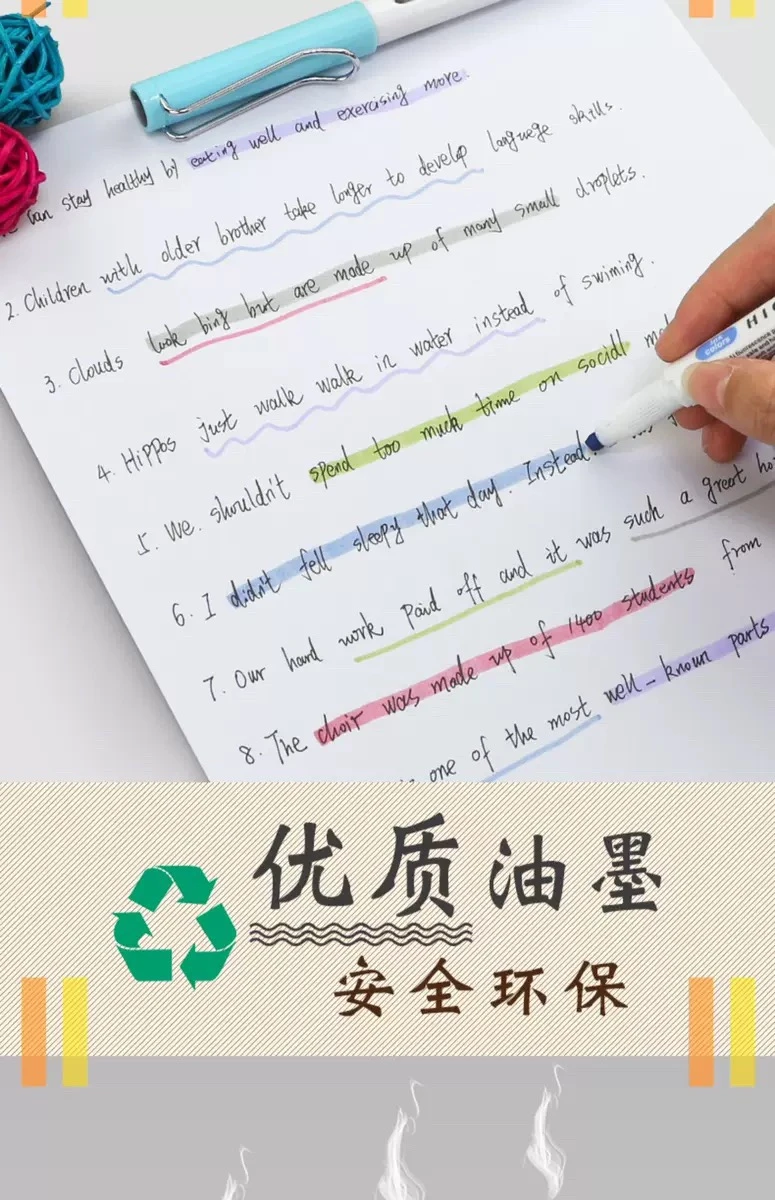 can stay healthy by eating well and exercising more.
2. Children with older brother take longer to develop language skills.
3. Clouds look bing but are made up of many small droplets.
4. Hippos just walk walk in water instead of swiming.
5. We. shouldn't spend too much time on social
6. I didn't fell sleepy that day. Instead.
7. Our hard work paid off and it was such a great
8. The choir was made up of 1400 students from
one of the most well-known parts
ink colors
优质油墨
安全环保